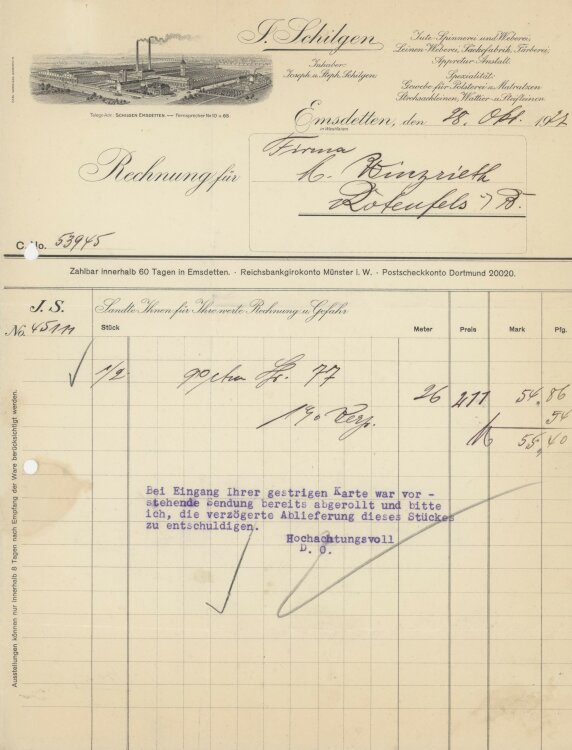 J. Schilgen
Inhaber:
Joseph u. Steph. Schilgen
Jute-Spinnerei und Weberei,
Leinen-Weberei, Säckefabrik, Färberei,
Appretur-Anstalt.
Spezialität:
Gewebe für Polsterei u. Matratzen
Strohsackleinen, Wattier- u. Steifleinen
Telegr.-Adr.: SCHILGEN EMSDETTEN. — Fernsprecher Nr. 10 u. 65
Emsdetten, den 28. Okt. 19
in Westfalen
Rechnung für
Firma
Rotenfels
C. No. 53945
Zahlbar innerhalb 60 Tagen in Emsdetten. · Reichsbankgirokonto Münster i. W. · Postscheckkonto Dortmund 20020.
J. S.
No. 45111
Sandte Ihnen für Ihre werte Rechnung u. Gefahr
Stück Meter Preis Mark Pfg.
1/2 77
26 211 54,86
1% Verp. 54
55,40
Bei Eingang Ihrer gestrigen Karte war vor -
stehende Sendung bereits abgerollt und bitte
ich, die verzögerte Ablieferung dieses Stückes
zu entschuldigen.
Hochachtungsvoll
D. O.
Ausstellungen können nur innerhalb 8 Tagen nach Empfang der Ware berücksichtigt werden.